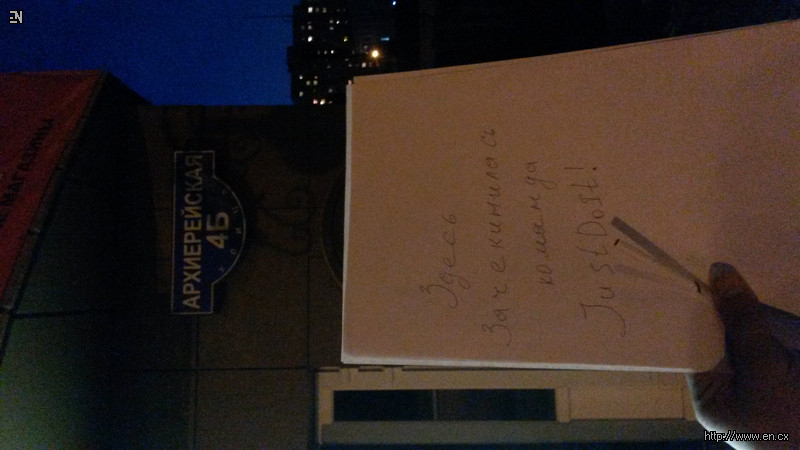 EN
МАГАЗИНЫ
АРХИЕРЕЙСКАЯ
4Б
Здесь
Зачекинилась
команда
JustDoIt!
http://www.en.cx